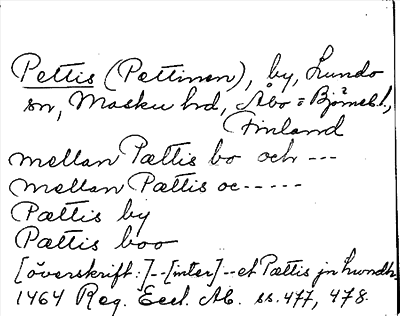 Pettis (Pættinen), by, Lundo
sn, Masku hd, Åbo = Björneb.l.,
Finland
mellan Pættis bo och ---
mellan Pættis oc-----
Pættis by
Pættis boo
[överskrift:]--[inter]--et Pættis jn hwndh.
1464 Reg. Eccl. Ab. ss. 477, 478.